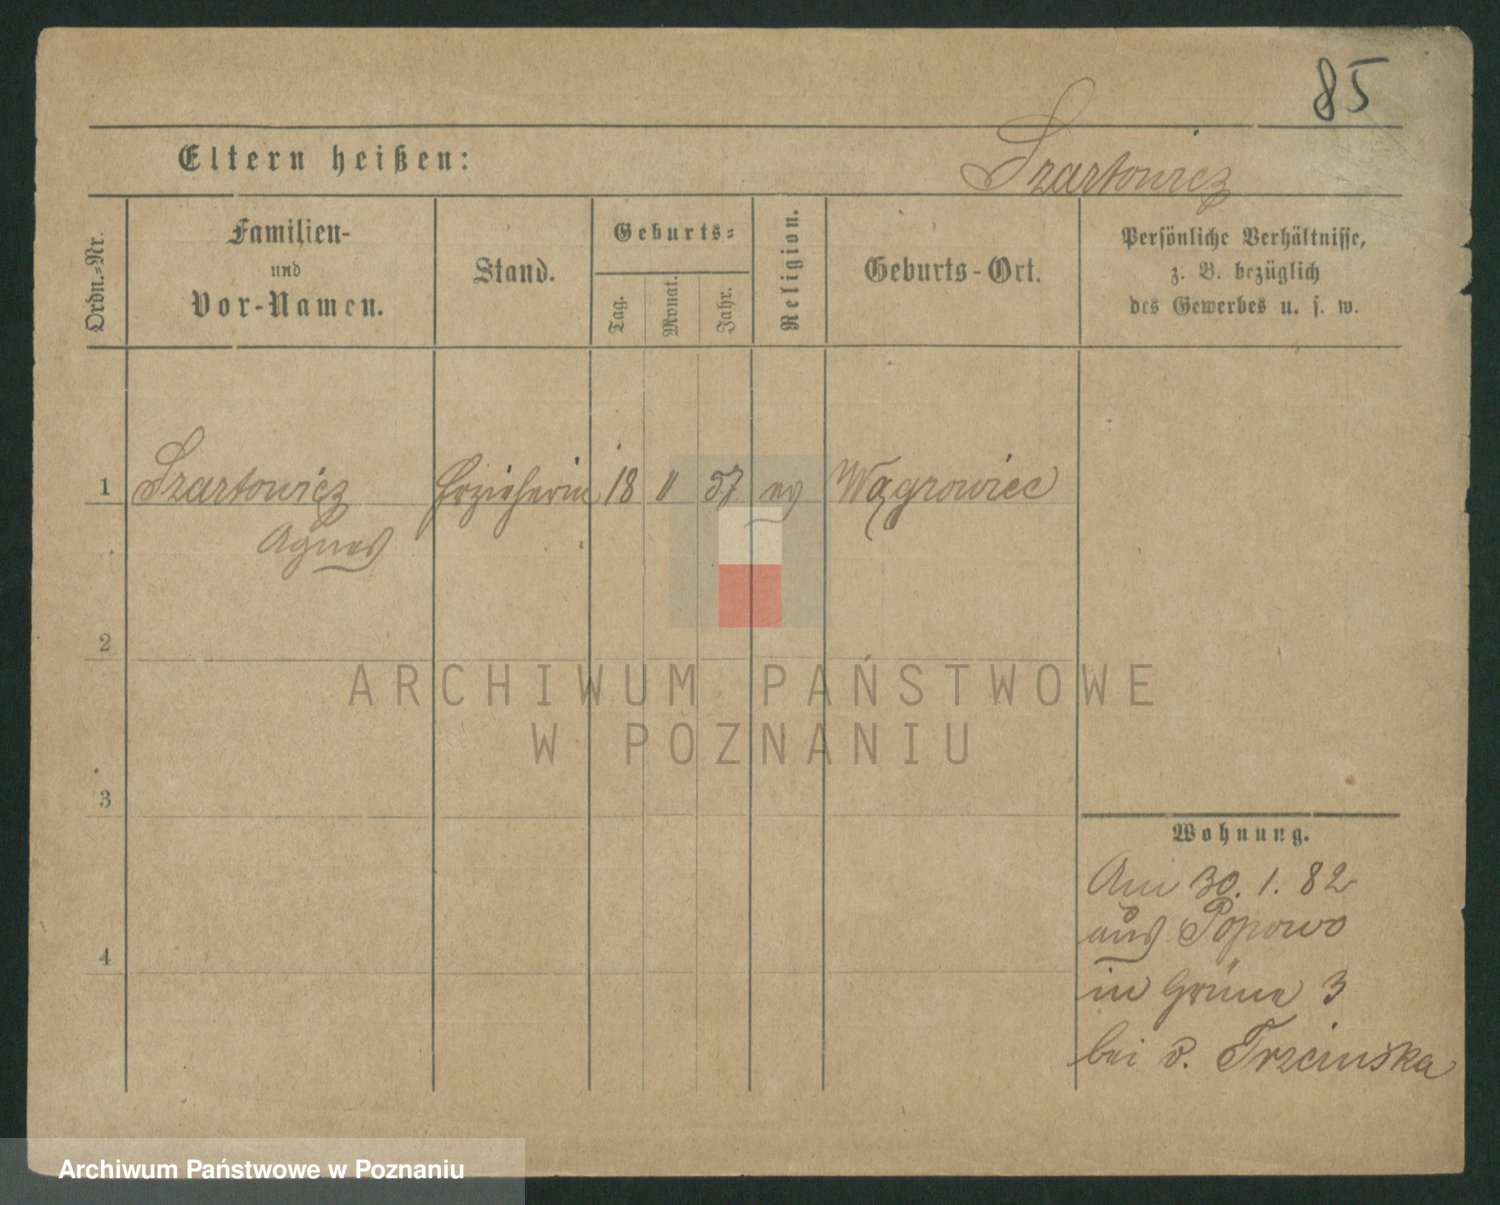 85
Eltern heißen: Szartowicz
Ordn.-Nr.
Familien-
und
Vor-Namen.
Stand.
Geburts-
Tag.
Monat.
Jahr.
Religion.
Geburts-Ort.
Persönliche Verhältnisse,
z. B. bezüglich
des Gewerbes u. s. w.
1 Szartowicz Erzieherin 18 11 57 ev Wągrowiec
Agnes
2
ARCHIWUM PAŃSTWOWE
W POZNANIU
3
Wohnung.
Am 30. 1. 82
aus Popowo
4
in Grüne 3
bei v. Trzcinska
Archiwum Państwowe w Poznaniu